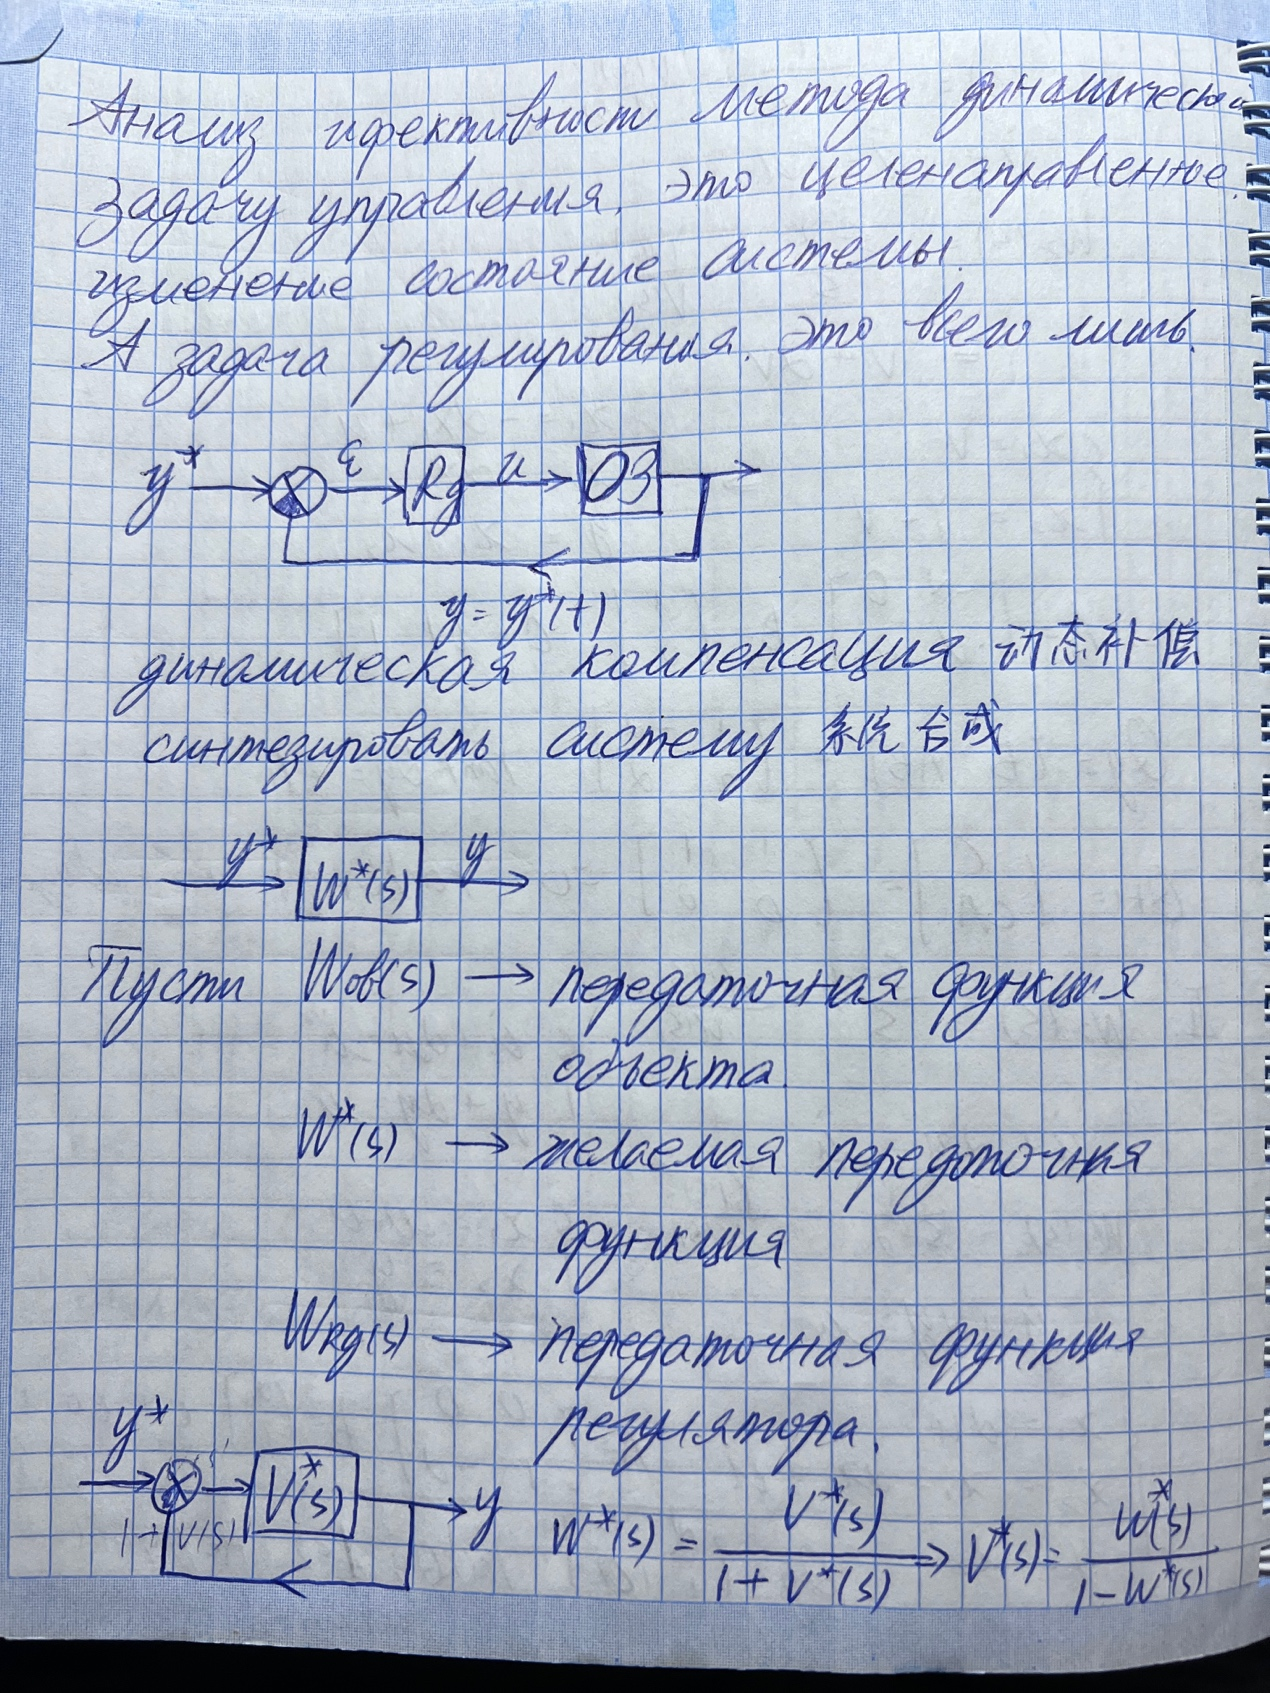 Анализ ифективности метода динамической
Задачу управления, это целенаправленное.
изменение состояние системы.
А задача регулирования. это всего лишь.
y* ε Rg u ОЗ
y = y*(t)
динамическая компенсация 动态补偿
синтезировать систему 系统合成
y* W*(s) y
Пусти Wоб(s) → передаточная функция
объекта.
W*(s) → желаемая передоточная
функция
WRg(s) → передаточная функция
регулятора.
y* V*(s) y
1 + V(s)
W*(s) = V*(s) / (1 + V*(s)) ⇒ V*(s) = W*(s) / (1 - W*(s))